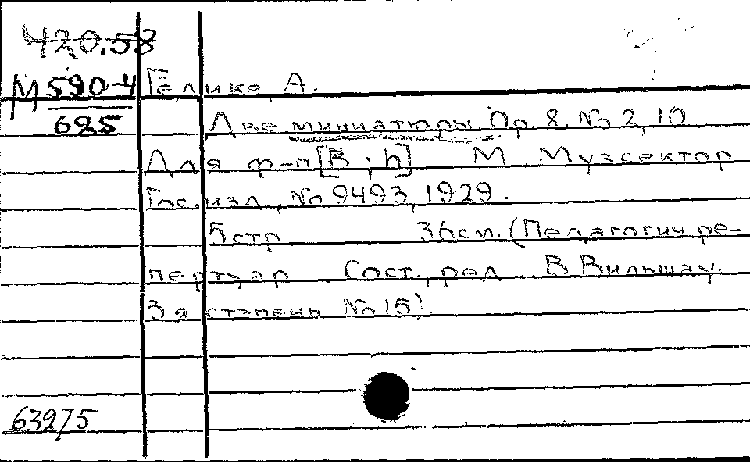 420.58
М 590-4 Гелике, А.
625 Две миниатюры. Ор. 8. № 2, 10
Для ф-п [B; h] М. Музсектор
Гос. изд., № 9493, 1929.
5 стр 36 см. (Педагогич. ре-
пертуар. Сост., ред. В. Вильшау.
3я ступень № 15)
63975